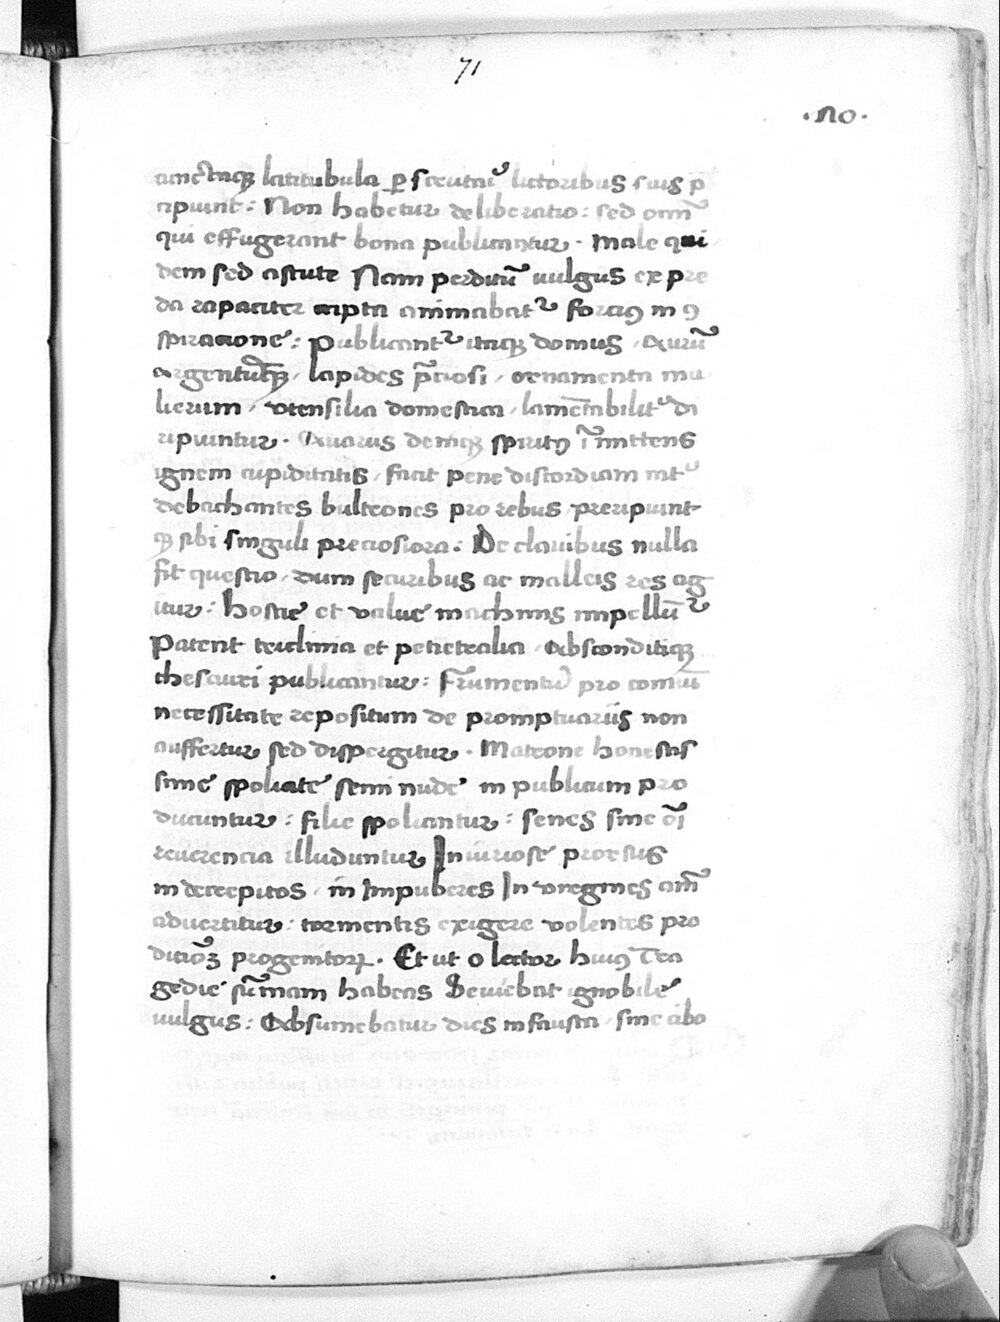 71
·no·
cunctaque latitubula ꝑ scrutāt᷑ lictoribus suis p̄
ripiunt: Non habetur deliberatio: sed om̄
qui effugerant bona publicantur. Male qui
dem sed astute Nam perditū uulgus ex pre
da rapaciter arpta animabat᷑ forcꝰ in ꝯ
spiracione: Publicant᷑ itaqꝫ domus / Aurū
argentūqꝫ / lapides p̄ciosi / ornamenta mu
lierum / vtensilia domestica / lamētabilit᷑ di
ripiuntur. Auarus deniqꝫ spiritꝰ īmittens
ignem cupiditatis / facit pene discordiam int᷑
debachantes bulteones pro rebus / preripiunt
qꝫ sibi singuli preciosiora: De clauibus nulla
fit questio / dum securibus ac malleis res ag
itur: hostie et value machinis impellūt᷑
Patent triclinia et penetralia / absconditiqꝫ
thesauri publicantur: Frumentū pro comūi
necessitate repositum de promptuariis non
auffertur sed dispergitur. Matrone honestis
sime spoliate semi nude in publicum pro
ducuntur: filie spoliantur: senes sine oī
reuerencia illuduntur Iniuriose prorsus
in decrepitos / in Impuberes In virgines aīm
aduertitur: tormentis exigere volentes pro
dicioꝫ progenitoꝝ. Et ut o lector huiꝰ Tra
gedie sūmam habeas Seuiebat ignobile
uulgus: Absumebatur dies infausta / sine cibo